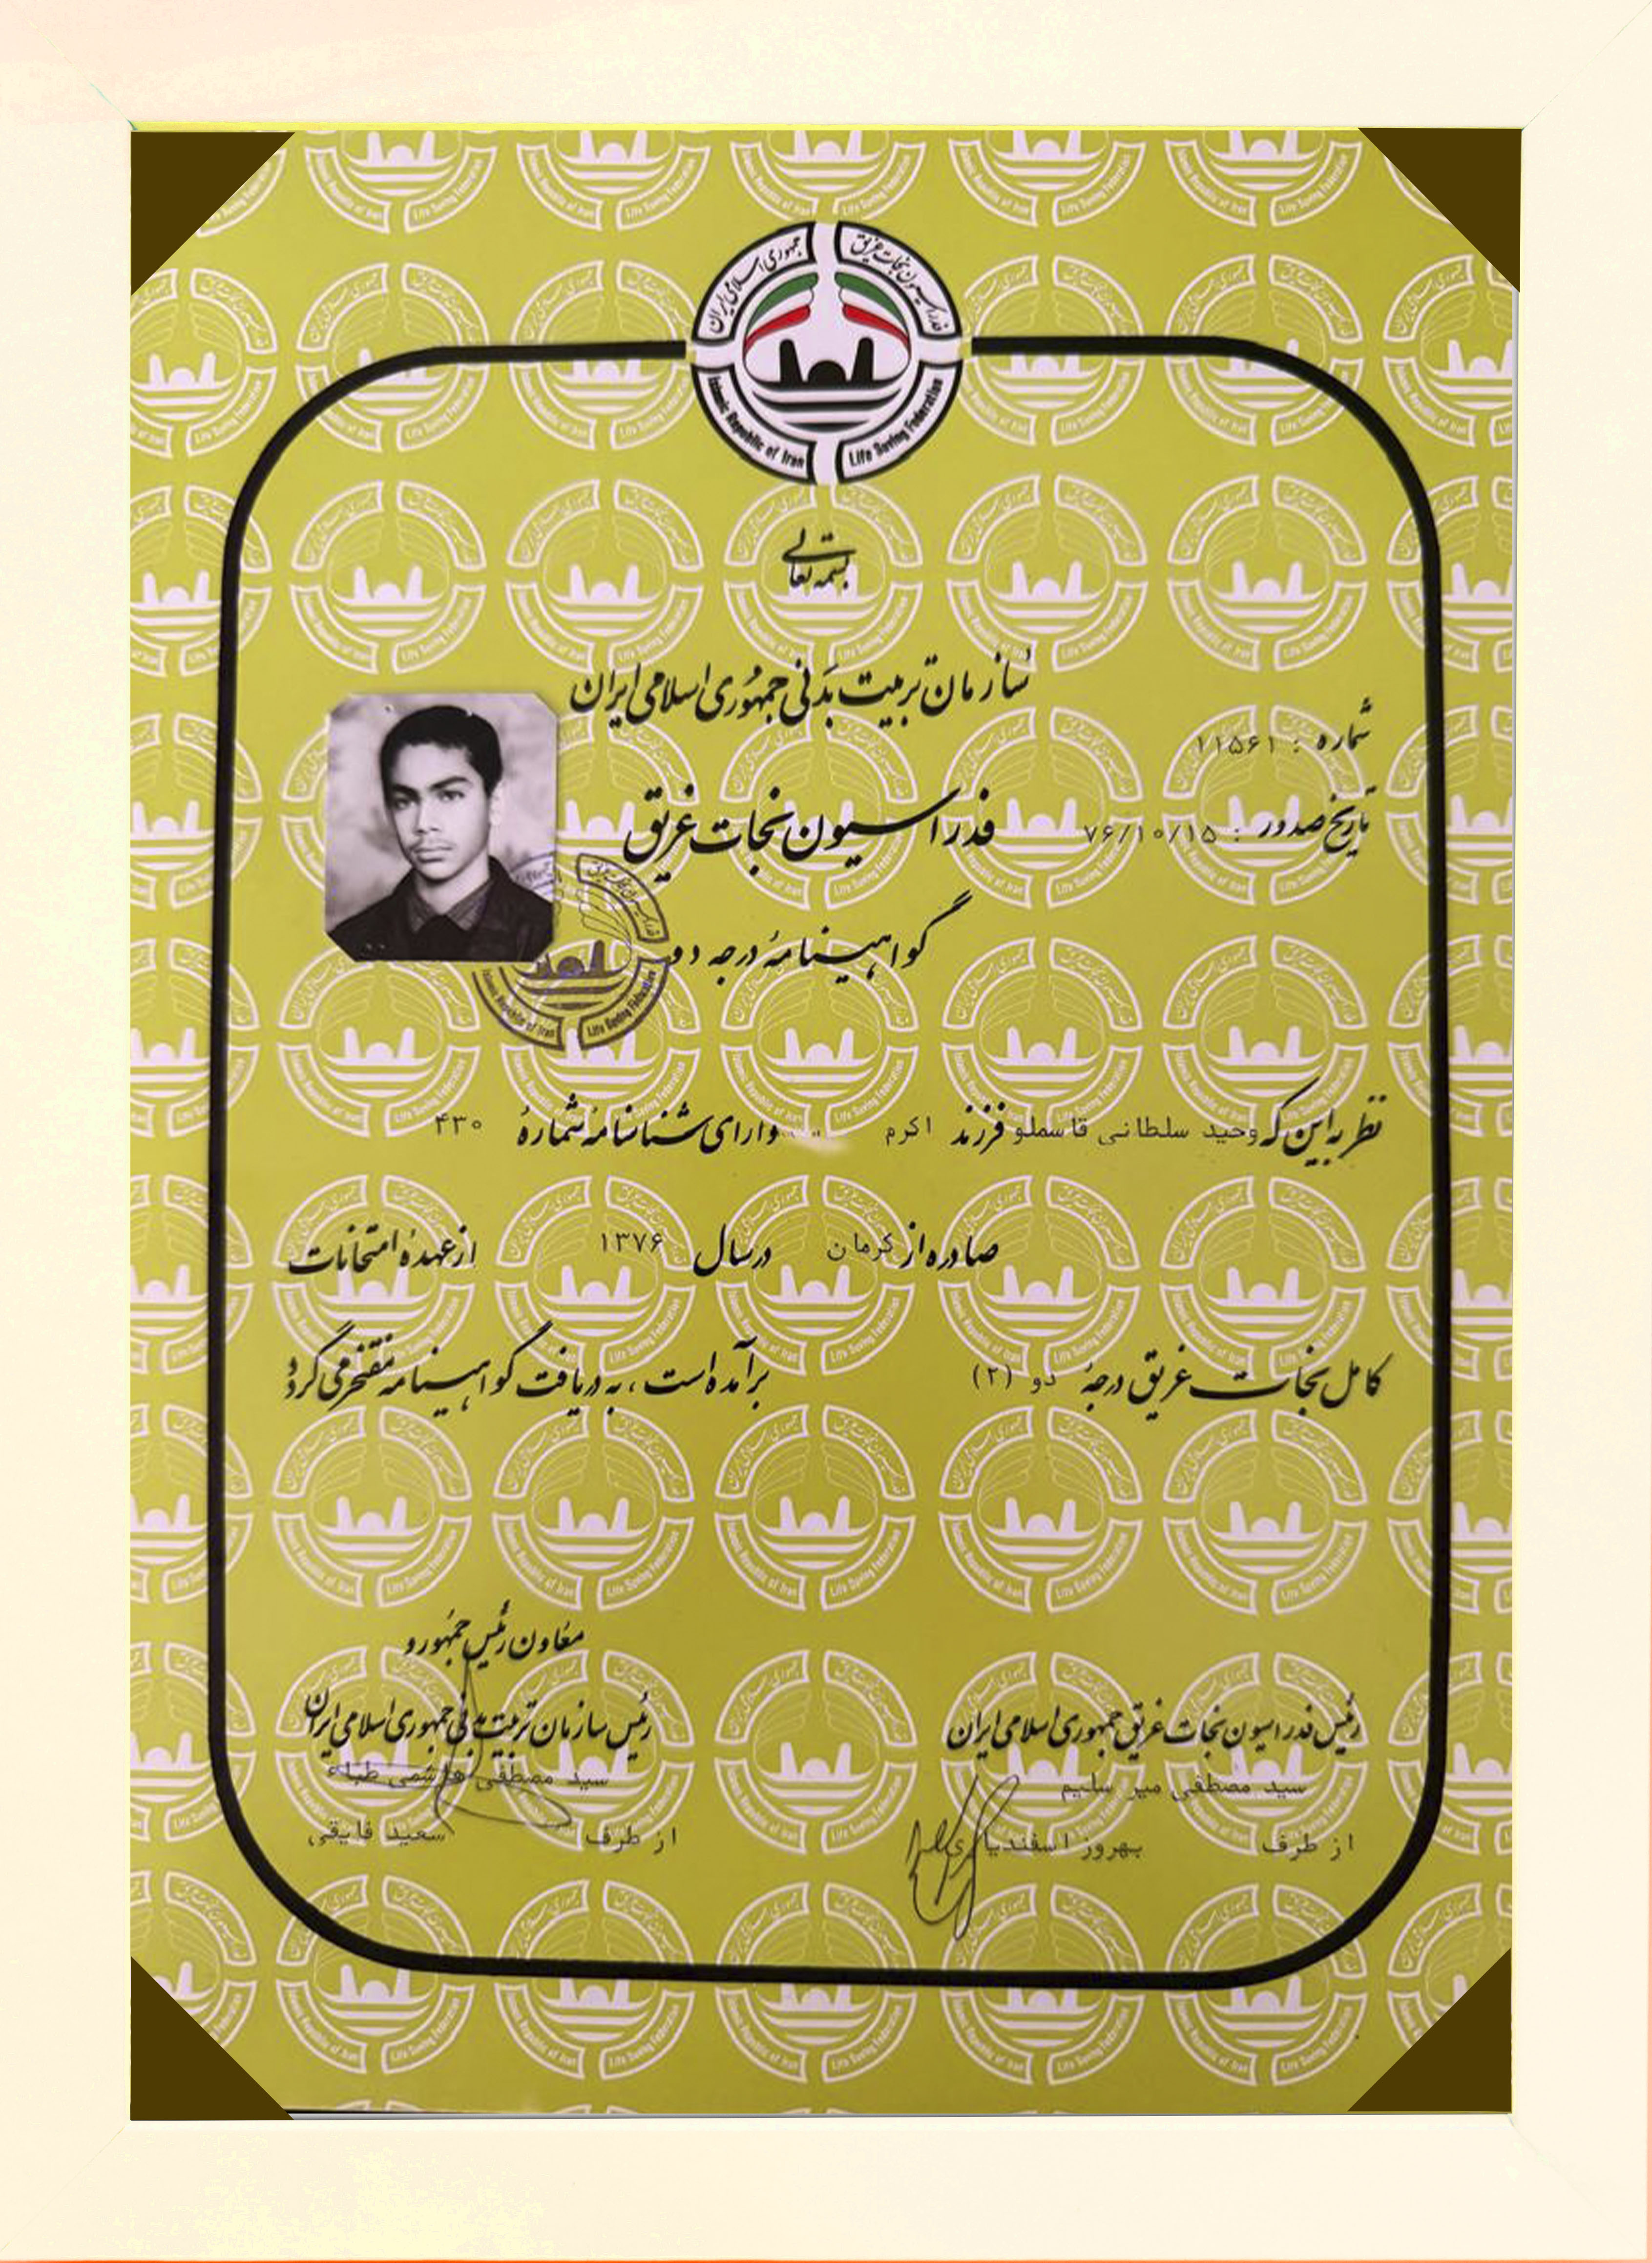 جمهوری اسلامی ایران
فدراسیون نجات غریق
Islamic Republic of Iran
Life Saving Federation
بسمه تعالی
سازمان تربیت بدنی جمهوری اسلامی ایران
شماره : ۱۱۵۶۱
فدراسیون نجات غریق
تاریخ صدور : ۷۶/۱۰/۱۵
گواهینامهٔ درجه دو
نظر به این که وحید سلطانی قاسملو فرزند اکرم دارای شناسنامه شمارهٔ ۴۳۰
صادره از کرمان در سال ۱۳۷۶ از عهدهٔ امتحانات
کامل نجات غریق درجهٔ دو (۲) برآمده است، به دریافت گواهینامه مفتخر می گردد
معاون رئیس جمهور و
رئیس سازمان تربیت بدنی جمهوری اسلامی ایران
سید مصطفی هاشمی طباء
از طرف سعید فایقی
رئیس فدراسیون نجات غریق جمهوری اسلامی ایران
سید مصطفی میر سلیم
از طرف بهروز اسفندیاری